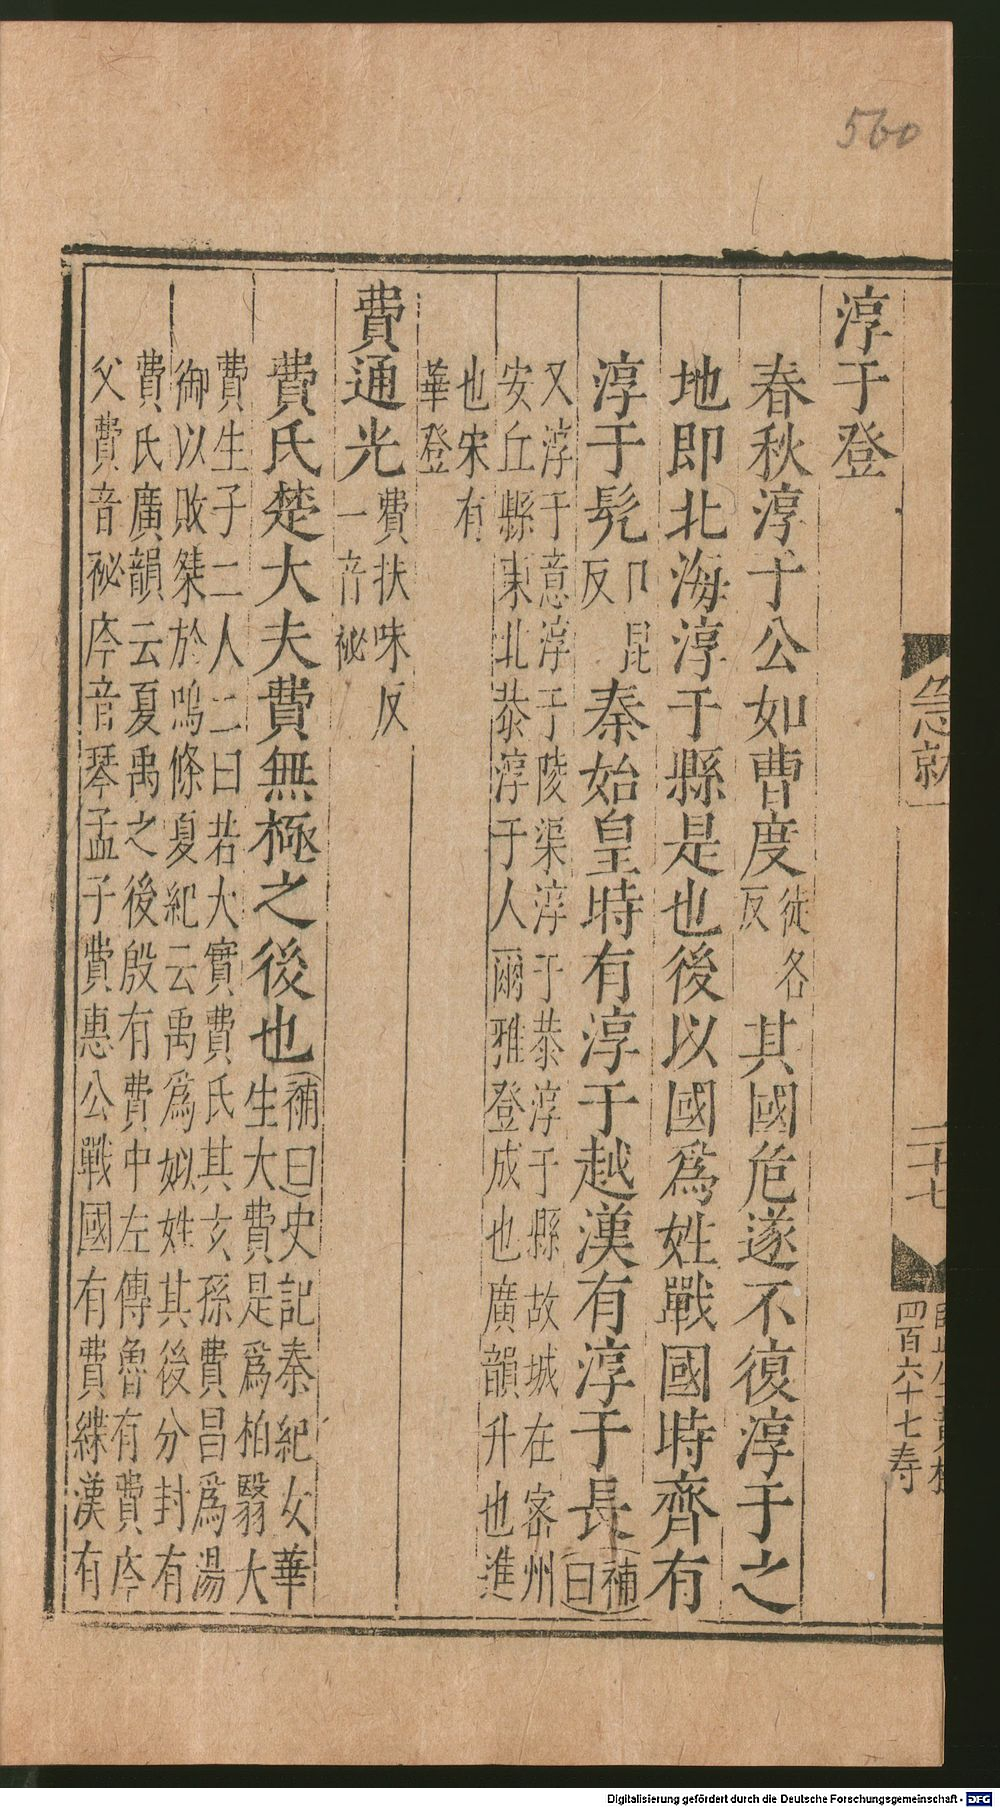 560
急就一
二十七
四百六十七寿
淳于登
春秋淳于公如曹度徒各反其國危遂不復淳于之
地即北海淳于縣是也後以國爲姓戰國時齊有
淳于髡口昆反秦始皇時有淳于越漢有淳于長補曰
又淳于意淳于陵渠淳于恭淳于縣故城在密州
安丘縣東北恭淳于人爾雅登成也廣韻升也進
也宋有
華登
費通光費扶味反一音祕
費氏楚大夫費無極之後也補曰史記秦紀女華生大費是爲柏翳大
費生子二人二曰若木實費氏其玄孫費昌爲湯
御以敗桀於鳴條夏紀云禹爲姒姓其後分封有
費氏廣韻云夏禹之後殷有費中左傳魯有費庈
父費音祕庈音琴孟子費惠公戰國有費緤漢有
Digitalisierung gefördert durch die Deutsche Forschungsgemeinschaft - DFG